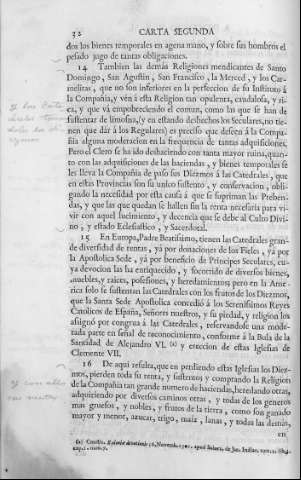 32 CARTA SEGUNDA
dos los bienes temporales en agena mano, y sobre sus hombros el
pesado jugo de tantas obligaciones.
14 Tambien las demás Religiones mendicantes de Santo
Domingo, San Agustin, San Francisco, la Merced, y los Car-
melitas, que no son inferiores en la perfeccion de su Instituto á
la Compañia, y vèn á esta Religion tan opulenta, caudalosa, y ri-
ca, y que vá empobreciendo el comun, como las que se han de
sustentar de limosna, (y en estando deshechos los Seculares, no tie-
nen que dár á los Regulares) es preciso que deseen á la Compa-
ñia alguna moderacion en la frequencia de tantas adquisiciones.
Pero el Clero se ha ido deshaciendo con tanta mayor ruina, quan-
to con las adquisiciones de las haciendas, y bienes temporales se
les lleva la Compañia de paso sus Diezmos á las Catedrales, que
en estas Provincias son su unico sustento, y conservacion, obli-
gando la necesidad por esta causa á que se supriman las Preben-
das, y que las que quedan se hallen sin la renta necesaria para vi-
vir con aquel lucimiento, y decencia que se debe al Culto Divi-
no, y estado Eclesiastico, y Sacerdotal.
15 En Europa, Padre Beatisimo, tienen las Catedrales gran-
de diversidad de rentas, yá por donaciones de los Fieles, yá por
la Apostolica Sede, yá por beneficio de Principes Seculares, cu-
ya devocion las ha enriquecido, y socorrido de diversos bienes,
muebles, raíces, posesiones, y heredamientos pero en la Ame-
rica solo se sustentan las Catedrales con los frutos de los Diezmos,
que la Santa Sede Apostolica concedió á los Serenisimos Reyes
Católicos de España, Señores nuestros, y su piedad, y religion los
asignó por congrua á las Catedrales, reservandose una mode-
rada parte en señal de reconocimiento, conforme á la Bula de la
Santidad de Alejandro VI. (a) y ereccion de estas Iglesias de
Clemente VII.
16 De aqui resulta, que en perdiendo estas Iglesias los Diez-
mos, pierden toda su renta, y sustento y comprando la Religion
de la Compañia tan grande numero de haciendas, heredando otras,
adquiriendo por diversos caminos otras, y todas de los generos
mas gruesos, y nobles, y frutos de la tierra, como son ganado
mayor y menor, azucar, trigo, maiz, lanas, y todas las demás,
en